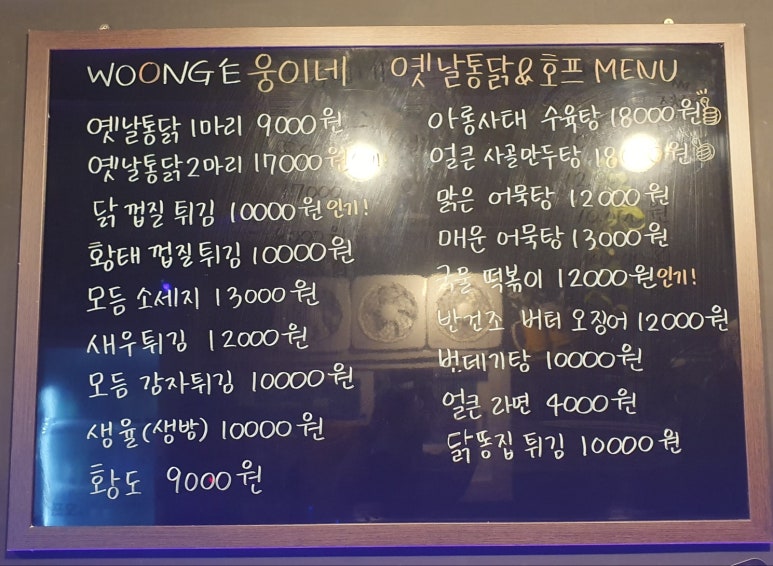 WOONG' 웅이네 옛날통닭&호프 MENU
옛날통닭 1마리 9000원
옛날통닭2마리 17000원
닭 껍질 튀김 10000원 인기!
황태 껍질튀김 10000원
모듬 소세지 13000원
새우튀김 12000원
모듬 감자튀김 10000원
생율(생밤) 10000원
황도 9000원
아롱사태 수육탕 18000원
얼큰 사골만두탕 원
맑은 어묵탕 12000원
매운 어묵탕 13000원
국물 떡볶이 12000원 인기!
반건조 버터 오징어 12000원
번데기탕 10000원
얼큰 라면 4000원
닭똥집 튀김 10000원